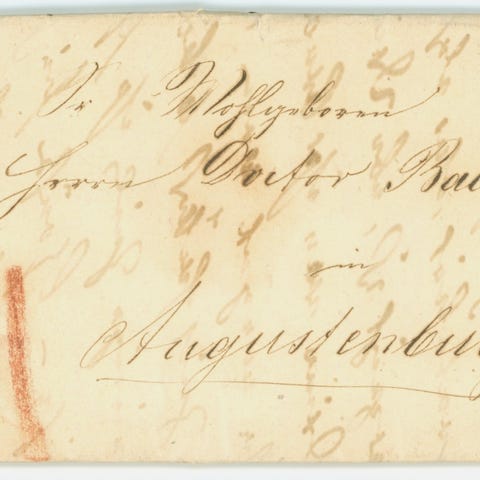 Sr Wohlgeboren
Herrn Doctor Ba
in
Augustenbu